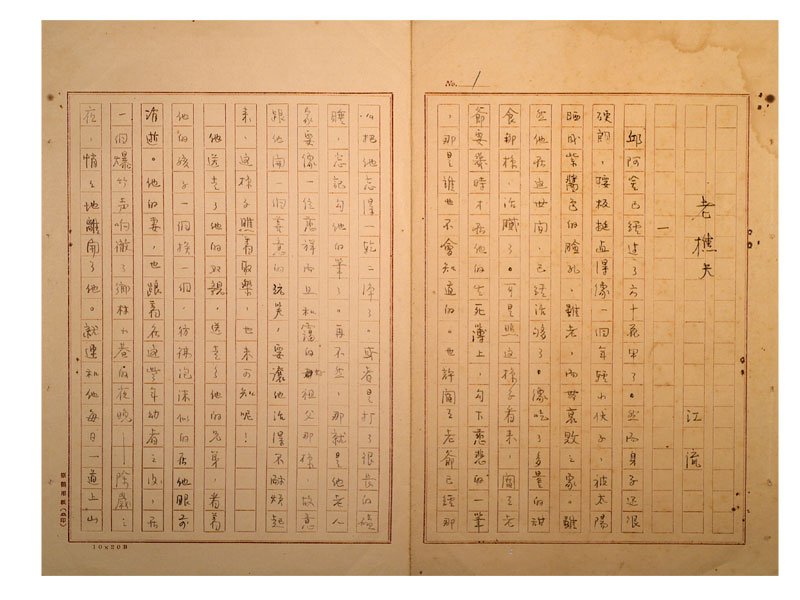 No. 1
老樵夫
江流
一
邱阿金已經过了六十花甲了。然而身子还很
硬朗，腰板挺直得像一個年輕小伙子，被太陽
晒成紫醬色的臉孔，雖老，而無衰敗之象。雖
然他在這世間，已經活够了。像吃了多量的甜
食那樣，活膩了。可是照這樣子看來，閻王老
爺要幾時才在他的生死薄上，勾下慈悲的一筆
，那是誰也不會知道的。也許閻王老爺已經那
么把他忘得一乾二淨了。或者是打了很長的瞌
睡，忘記勾他的筆了。再不然，那就是他老人
家要像一位慈祥而且和靄的祖父那樣，故意
跟他開一個善意的玩笑，要讓他活得不耐煩起
來，這樣子瞧着取樂，也未可知呢！
他送走了他的双親，送走了他的兄弟，看着
他的孩子一個挨一個，彷彿泡沫似的在他眼前
消逝。他的妻，也跟着在這些年幼者之後，在
一個爆竹声响徹了鄉村小巷的夜晚——除歲
夜，悄々地離開了他。就連和他每日一道上山
10×20B